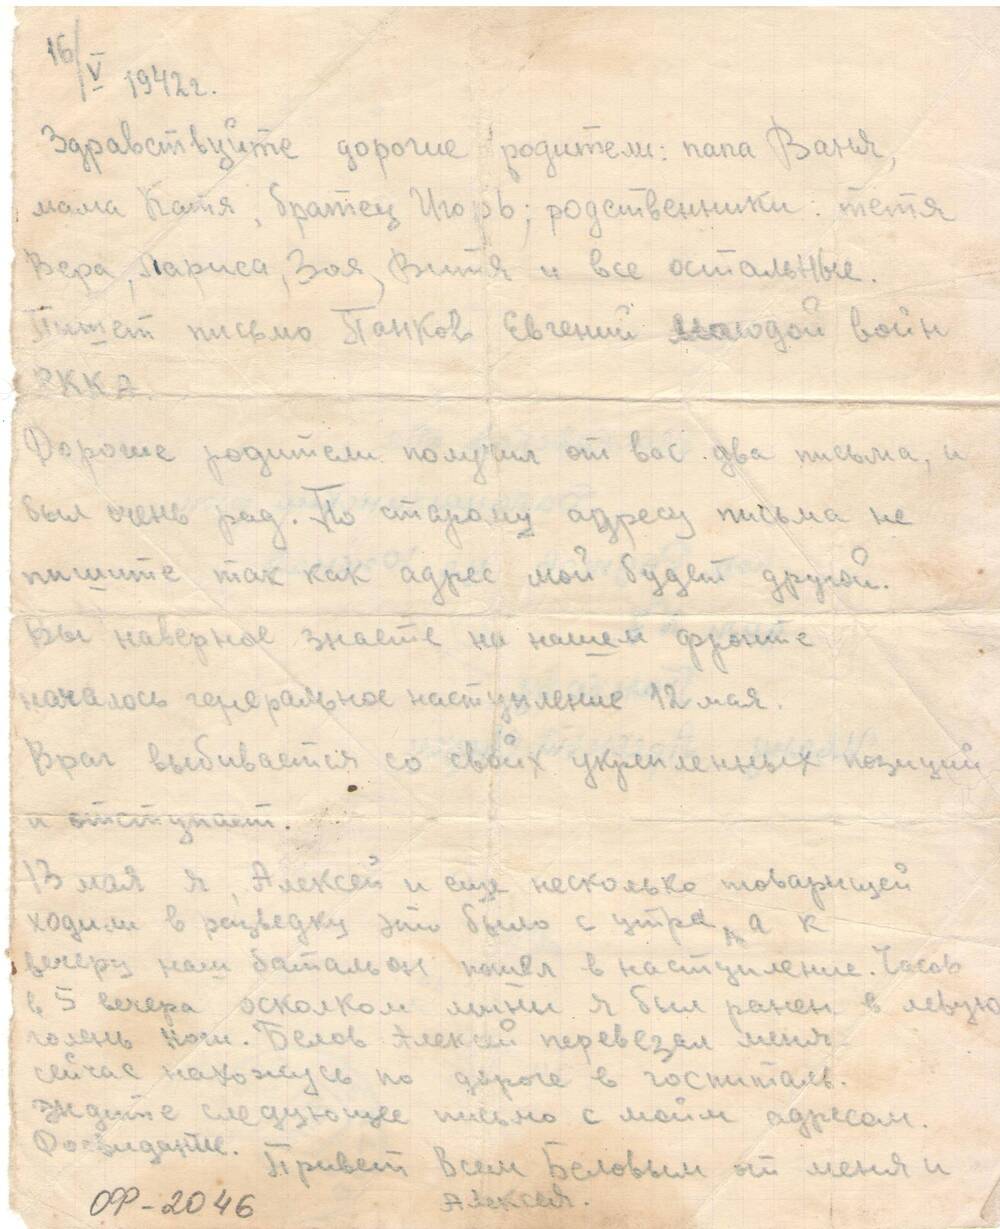 16/V 1942г.
Здравствуйте дорогие родители: папа Ваня,
мама Катя, братец Игорь; родственники: тетя
Вера, Лариса, Зоя, Витя и все остальные.
Пишет письмо Панков Евгений молодой войн
РККА.
Дорогие родители получил от вас два письма, и
был очень рад. По старому адресу письма не
пишите так как адрес мой будет другой.
Вы наверное знаете на нашем фронте
началось генеральное наступление 12 мая.
Враг выбивается со свойх укрепленных позиций
и отступает.
13 мая я, Алексей и еще несколько товарищей
ходили в разведку это было с утра, а к
вечеру наш батальон пошел в наступление. Часов
в 5 вечера осколком мины я был ранен в левую
голень ноги. Белов Алексей перевезал меня
сейчас нахожусь по дороге в госпиталь.
Ждите следующее письмо с мойм адресом.
Досвидание.
Привет Всем Беловым от меня и
Алексея.
ОФ-2046